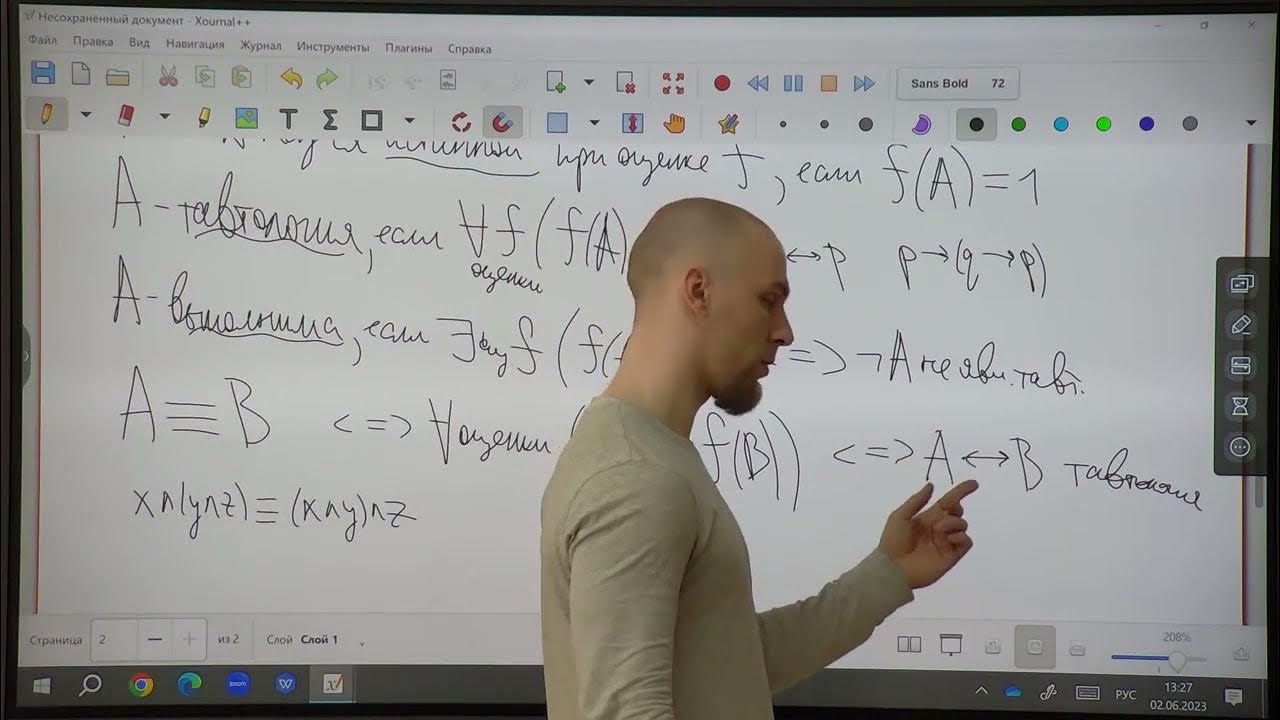 Несохраненный документ - Xournal++
Файл Правка Вид Навигация Журнал Инструменты Плагины Справка
Sans Bold 72
истинной при оценке f, если f(A)=1
A - тавтология, если ∀f (f(A) ↔p p→(q→p)
оценки
A - выполнима, если ∃ f (f( => ¬A не явл. тавт.
A≡B <=> ∀оценки f(B)) <=> A↔B тавтология
x∧(y∧z)≡(x∧y)∧z
Страница 2 из 2 Слой Слой 1
208%
zoom
РУС 13:27
02.06.2023